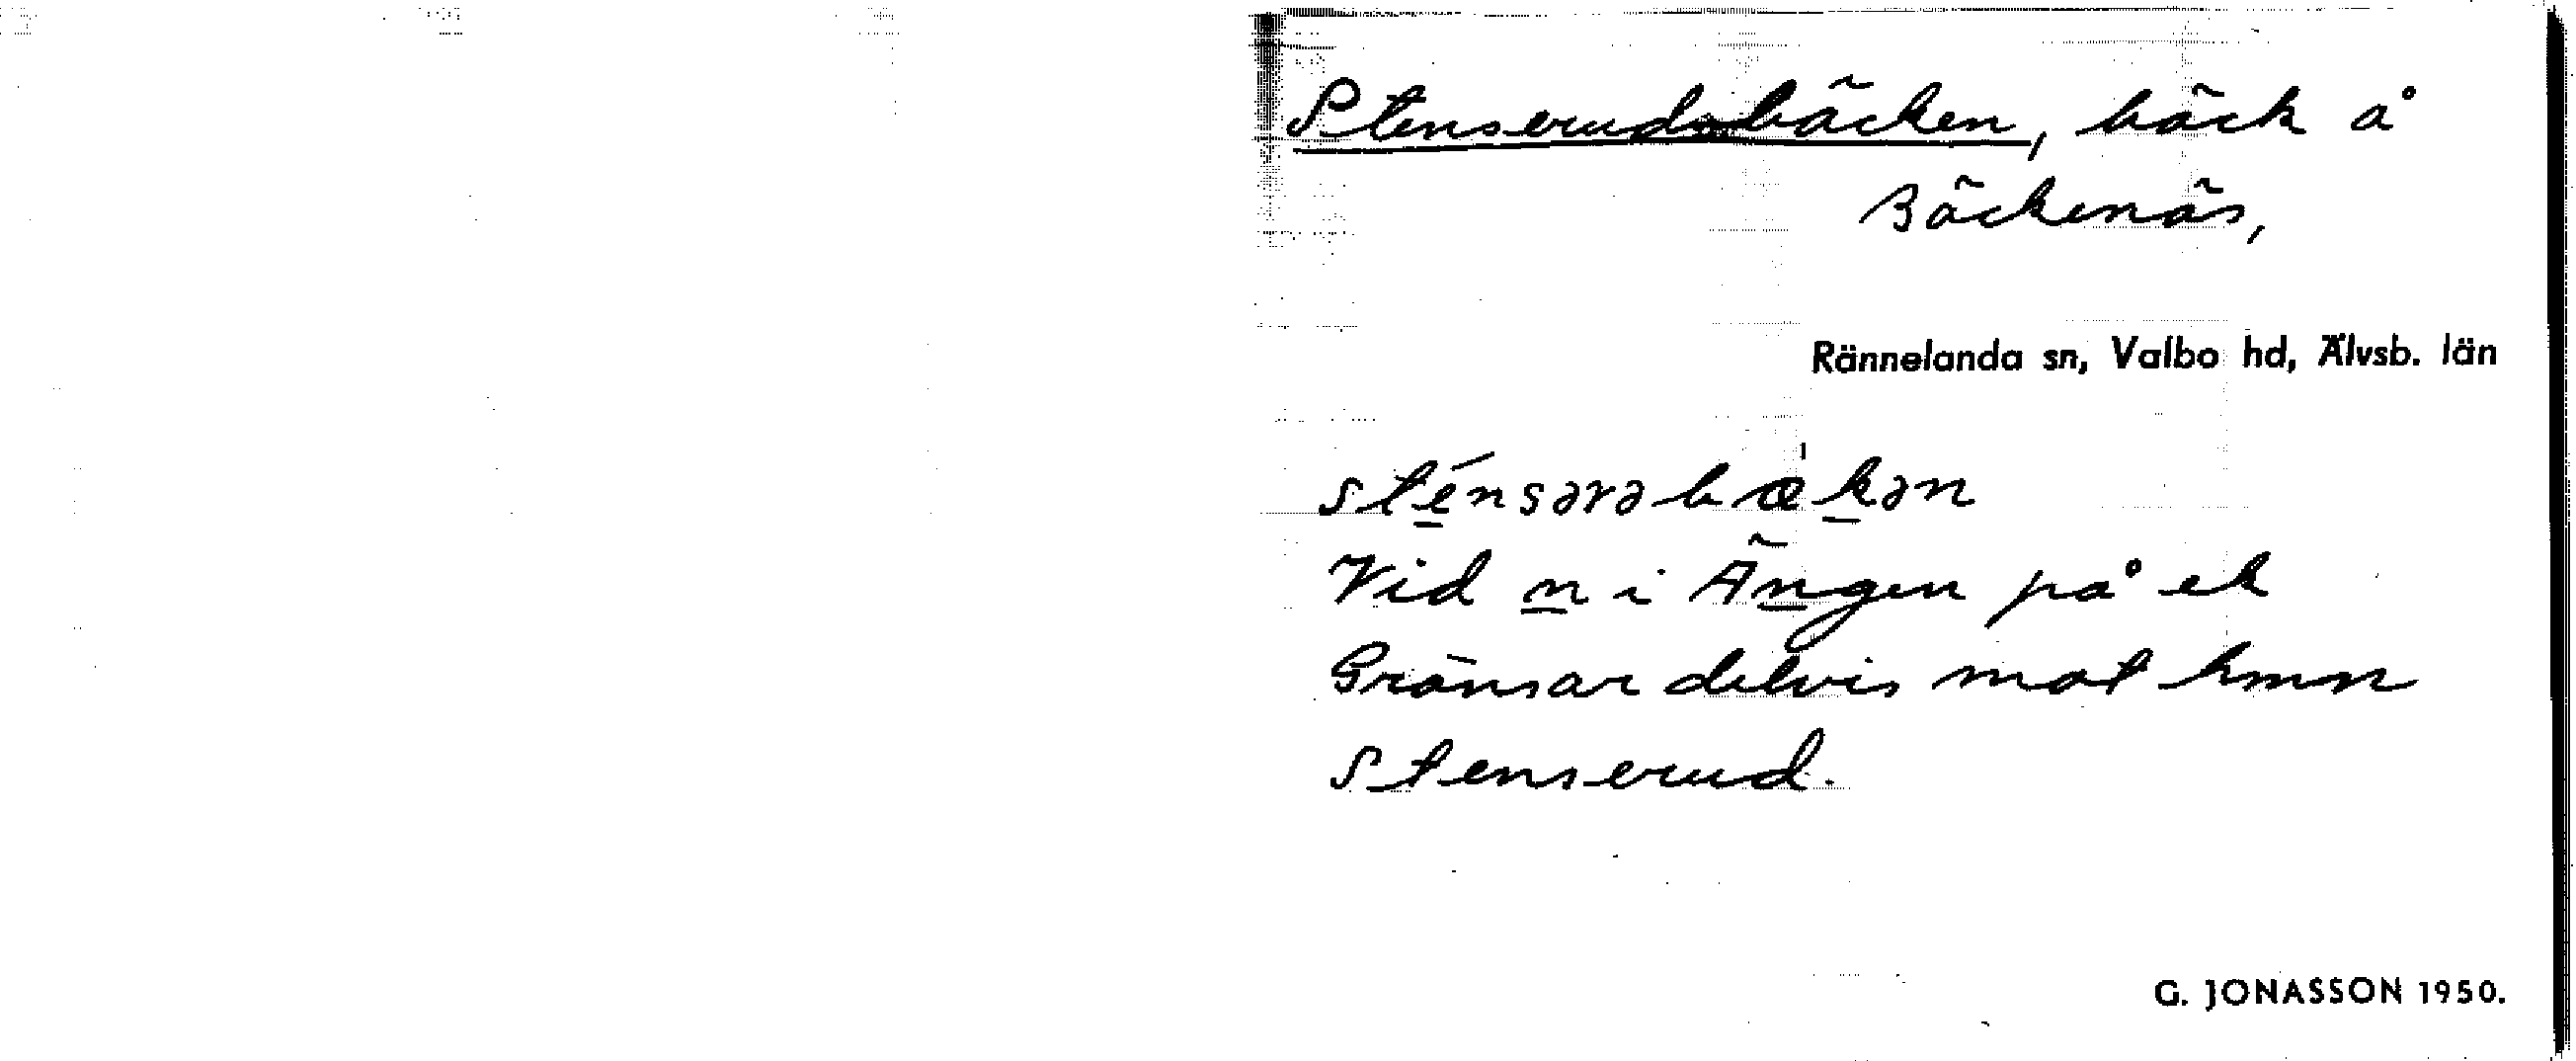 Stenserudsbäcken, bäck å
Bäckenäs,
Rännelanda sn, Valbo hd, Älvsb. län
sténsərəbæ̍kən
Vid n i Ängen på ek
Gränsar delvis mot hmn
Stenserud.
G. JONASSON 1950.